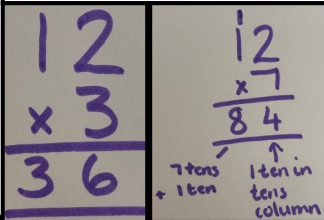 12
x 3
36
1
12
x 7
84
7 tens
+ 1 ten
1 ten in
tens
column